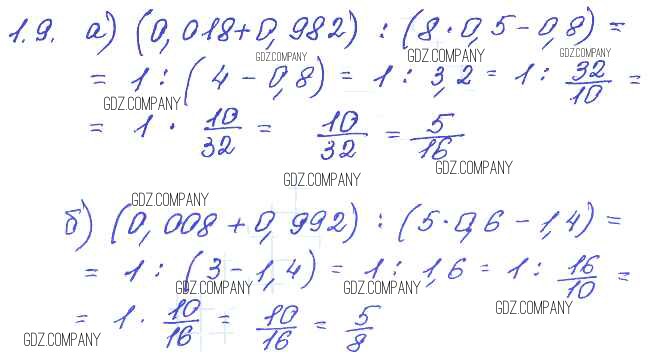 1.9. а) (0,018+0,982) : (8·0,5-0,8) =
GDZ.COMPANY GDZ.COMPANY GDZ.COMPANY
= 1 : (4-0,8) = 1 : 3,2 = 1 : 32/10 =
GDZ.COMPANY
= 1 · 10/32 = 10/32 = 5/16
GDZ.COMPANY
GDZ.COMPANY
GDZ.COMPANY
б) (0,008+0,992) : (5·0,6-1,4) =
= 1 : (3-1,4) = 1 : 1,6 = 1 : 16/10 =
GDZ.COMPANY GDZ.COMPANY
GDZ.COMPANY
= 1 · 10/16 = 10/16 = 5/8
GDZ.COMPANY